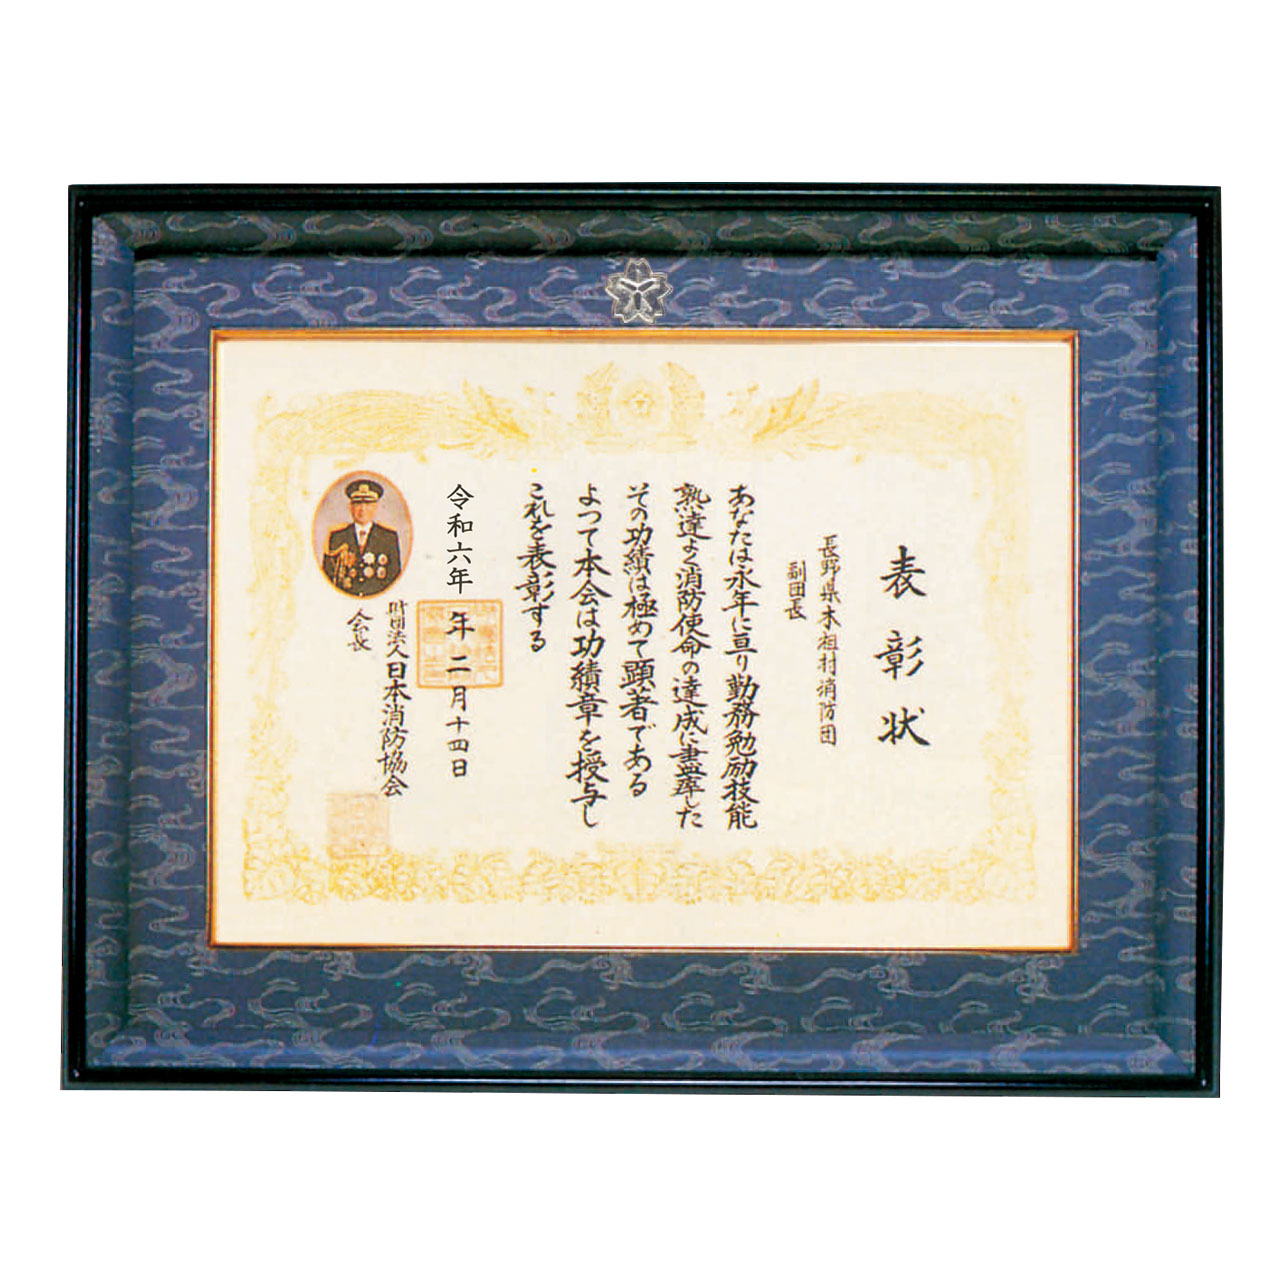 表彰状
長野県木祖村消防団
副団長
あなたは永年に亘り勤務勉励技能
熟達よく消防使命の達成に盡瘁した
その功績は極めて顕著である
よつて本会は功績章を授与し
これを表彰する
令和六年
年二月十四日
財団法人日本消防協会
会長